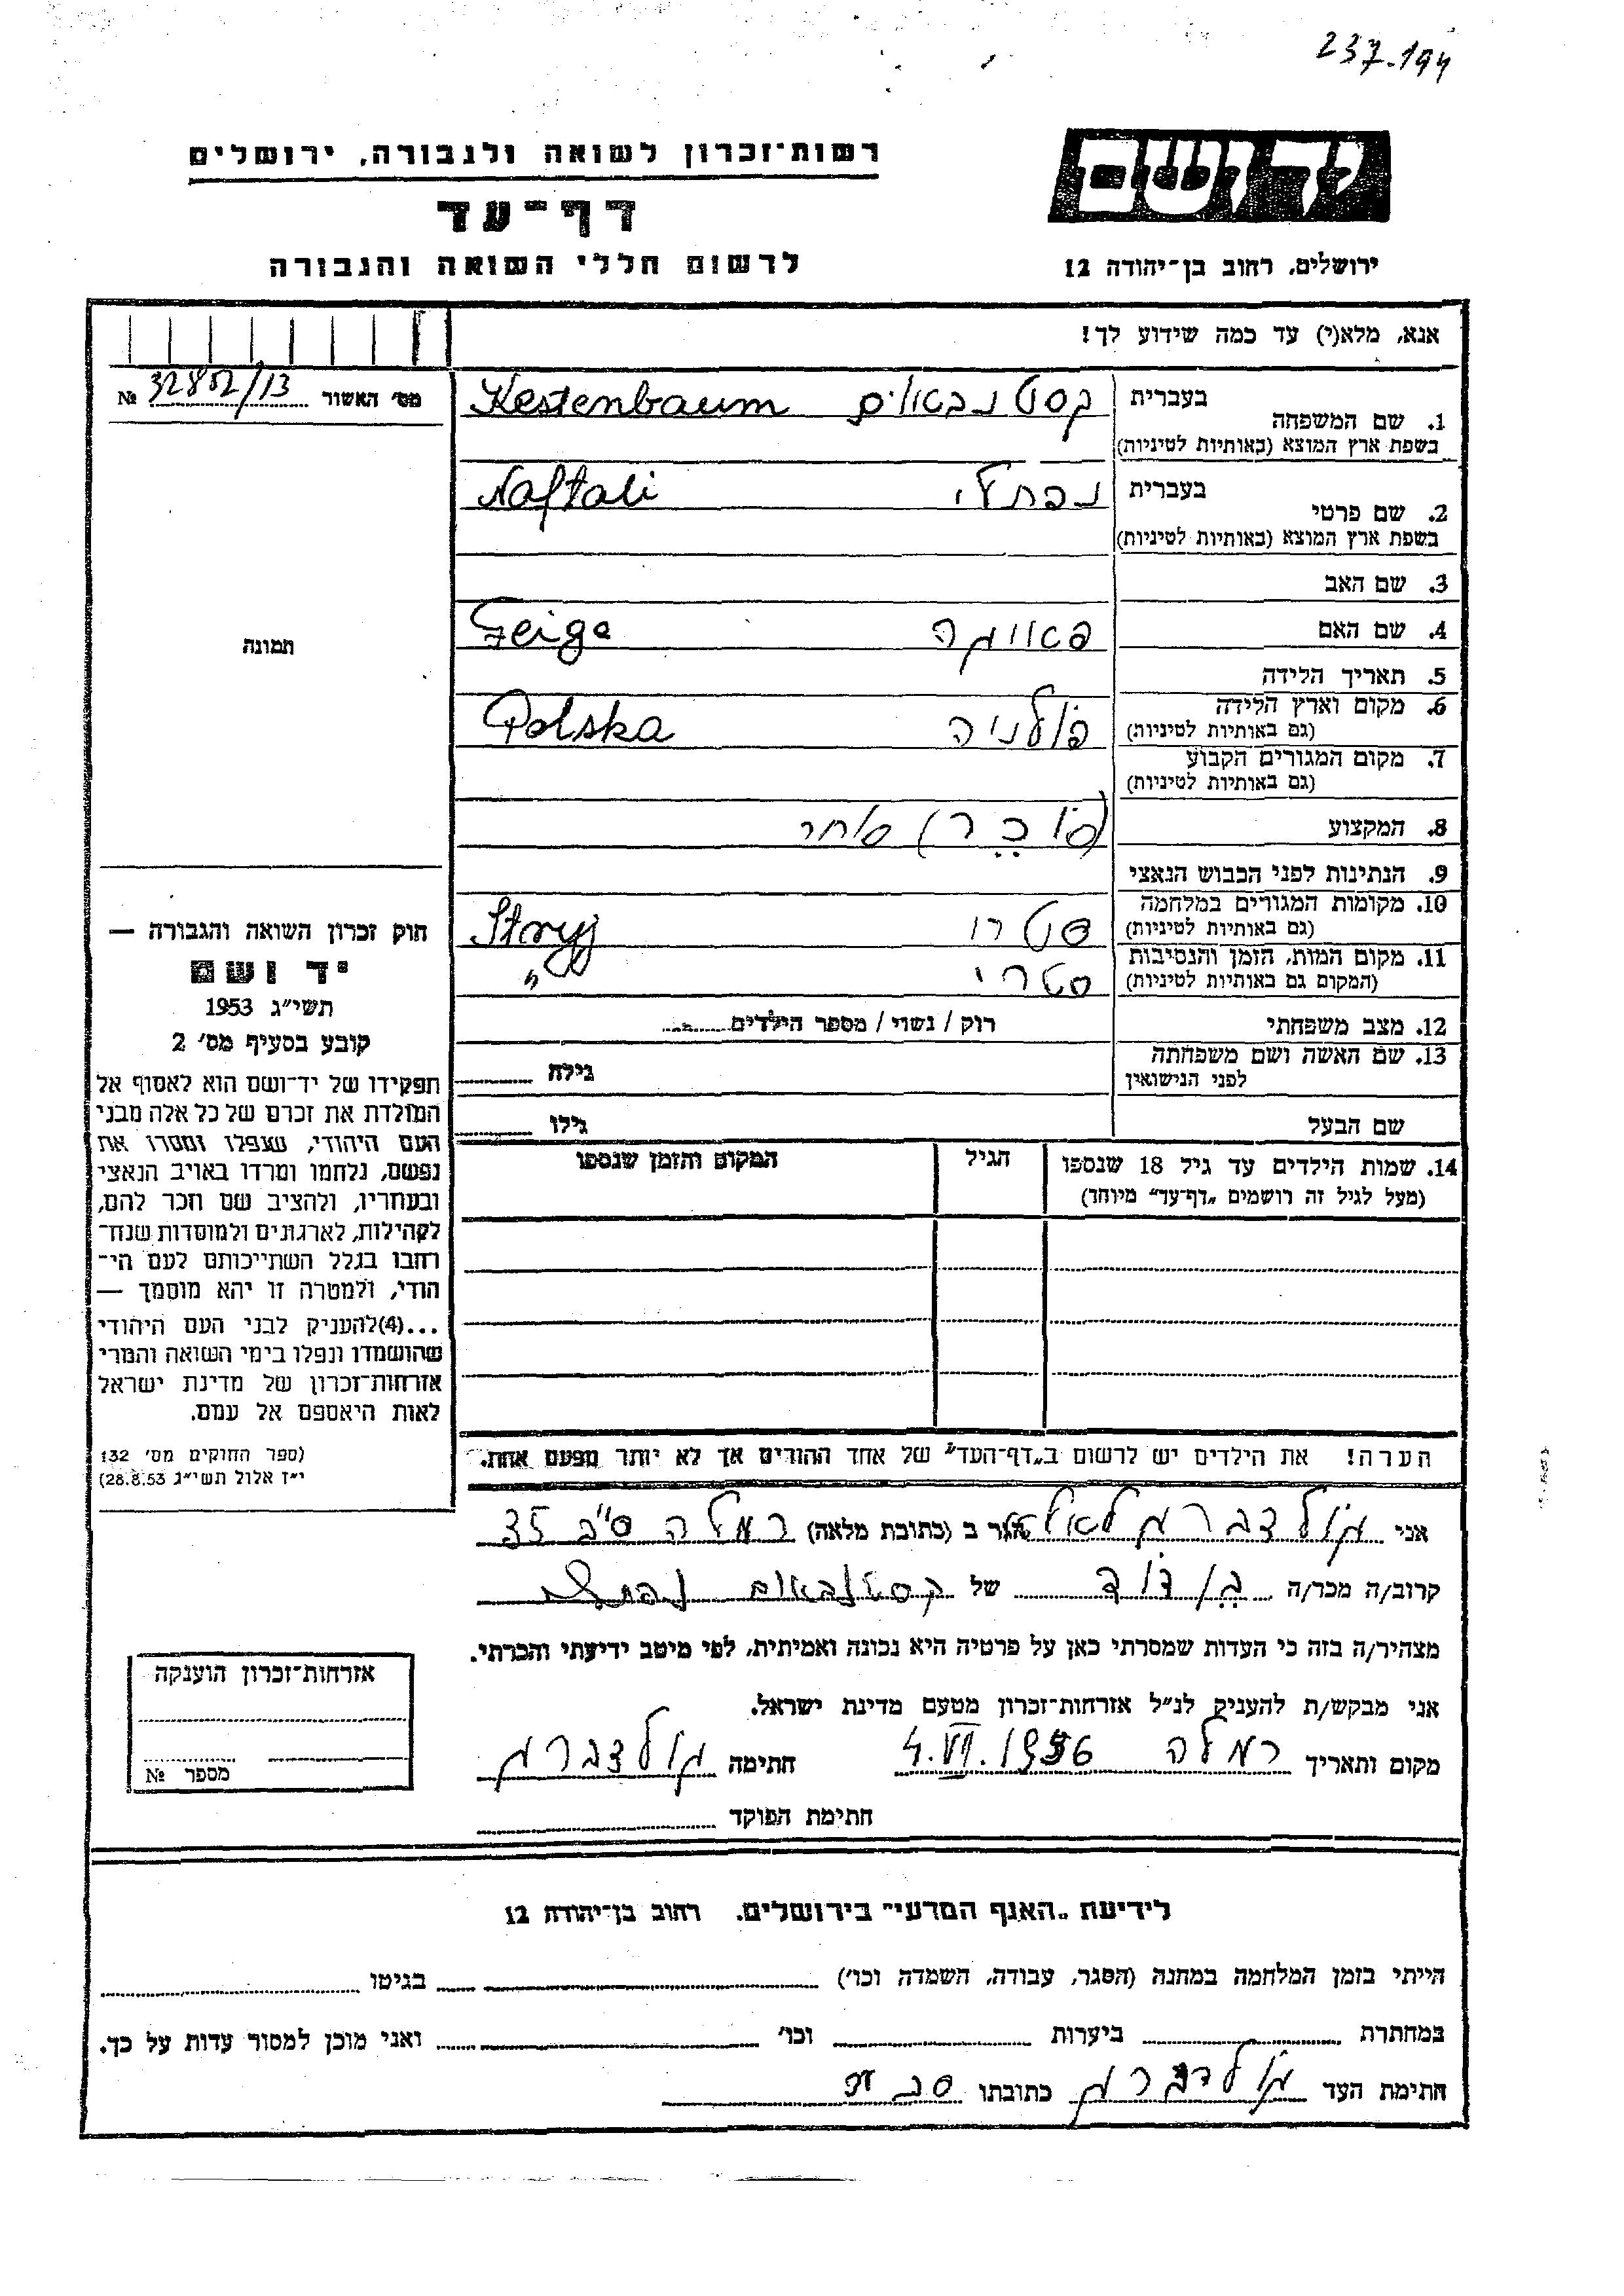 237-194
יד ושם
רשות-זכרון לשואה ולגבורה, ירושלים
דף-עד
לרשום חללי השואה והגבורה
ירושלים, רחוב בן-יהודה 12
אנא, מלא(י) עד כמה שידוע לך!
מס׳ האשור 32852/13 №
1. שם המשפחה בעברית קסטנבאוים Kestenbaum
בשפת ארץ המוצא (באותיות לטיניות)
2. שם פרטי בעברית נפתלי Naftali
בשפת ארץ המוצא (באותיות לטיניות)
3. שם האב
4. שם האם פאייגה Feiga
תמונה
5. תאריך הלידה
6. מקום וארץ הלידה פולניה Polska
(גם באותיות לטיניות)
7. מקום המגורים הקבוע
(גם באותיות לטיניות)
8. המקצוע (סוכר) סוחר
9. הנתינות לפני הכבוש הנאצי
10. מקומות המגורים במלחמה סטרי Stryj
(גם באותיות לטיניות)
11. מקום המות, הזמן והנסיבות סטרי "
(המקום גם באותיות לטיניות)
12. מצב משפחתי רוק / נשוי / מספר הילדים
13. שם האשה ושם משפחתה גילה
לפני הנישואין
שם הבעל גילו
14. שמות הילדים עד גיל 18 שנספו הגיל המקום והזמן שנספו
(מעל לגיל זה רושמים „דף-עד" מיוחד)
הערה! את הילדים יש לרשום ב„דף-העד" של אחד ההורים אך לא יותר מפעם אחת.
חוק זכרון השואה והגבורה —
יד ושם
תשי״ג 1953
קובע בסעיף מס׳ 2
תפקידו של יד-ושם הוא לאסוף אל
המולדת את זכרם של כל אלה מבני
העם היהודי, שנפלו ומסרו את
נפשם, נלחמו ומרדו באויב הנאצי
ובעוזריו, ולהציב שם וזכר להם,
לקהילות, לארגונים ולמוסדות שנח-
רבו בגלל השתייכותם לעם הי-
הודי, ולמטרה זו יהא מוסמך —
...(4)להעניק לבני העם היהודי
שהושמדו ונפלו בימי השואה והמרי
אזרחות-זכרון של מדינת ישראל
לאות היאספם אל עמם.
(ספר החוקים מס׳ 132
י״ז אלול תשי״ג 28.8.53)
אני גולדברג הגר ב (כתובת מלאה) רמלה ס"ב 35
קרוב/ה מכר/ה בן דוד של קסטנבאום נפתלי
מצהיר/ה בזה כי העדות שמסרתי כאן על פרטיה היא נכונה ואמיתית, לפי מיטב ידיעתי והכרתי.
אני מבקש/ת להעניק לנ״ל אזרחות-זכרון מטעם מדינת ישראל.
מקום ותאריך רמלה 4.VI.1956 חתימה גולדברג
חתימת הפוקד
אזרחות-זכרון הוענקה
מספר №
לידיעת „האגף המדעי" בירושלים, רחוב בן-יהודה 12
הייתי בזמן המלחמה במחנה (הסגר, עבודה, השמדה וכו׳) בגיטו
במחתרת ביערות וכו׳ ואני מוכן למסור עדות על כך.
חתימת העד גולדברג כתובתו